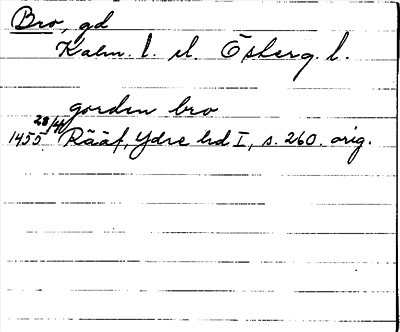 Bro, gd
Kalm. l. el. Östberg. l.
gorden bro
1455 28/4 Rääf, Ydre hd I, s. 260. orig.